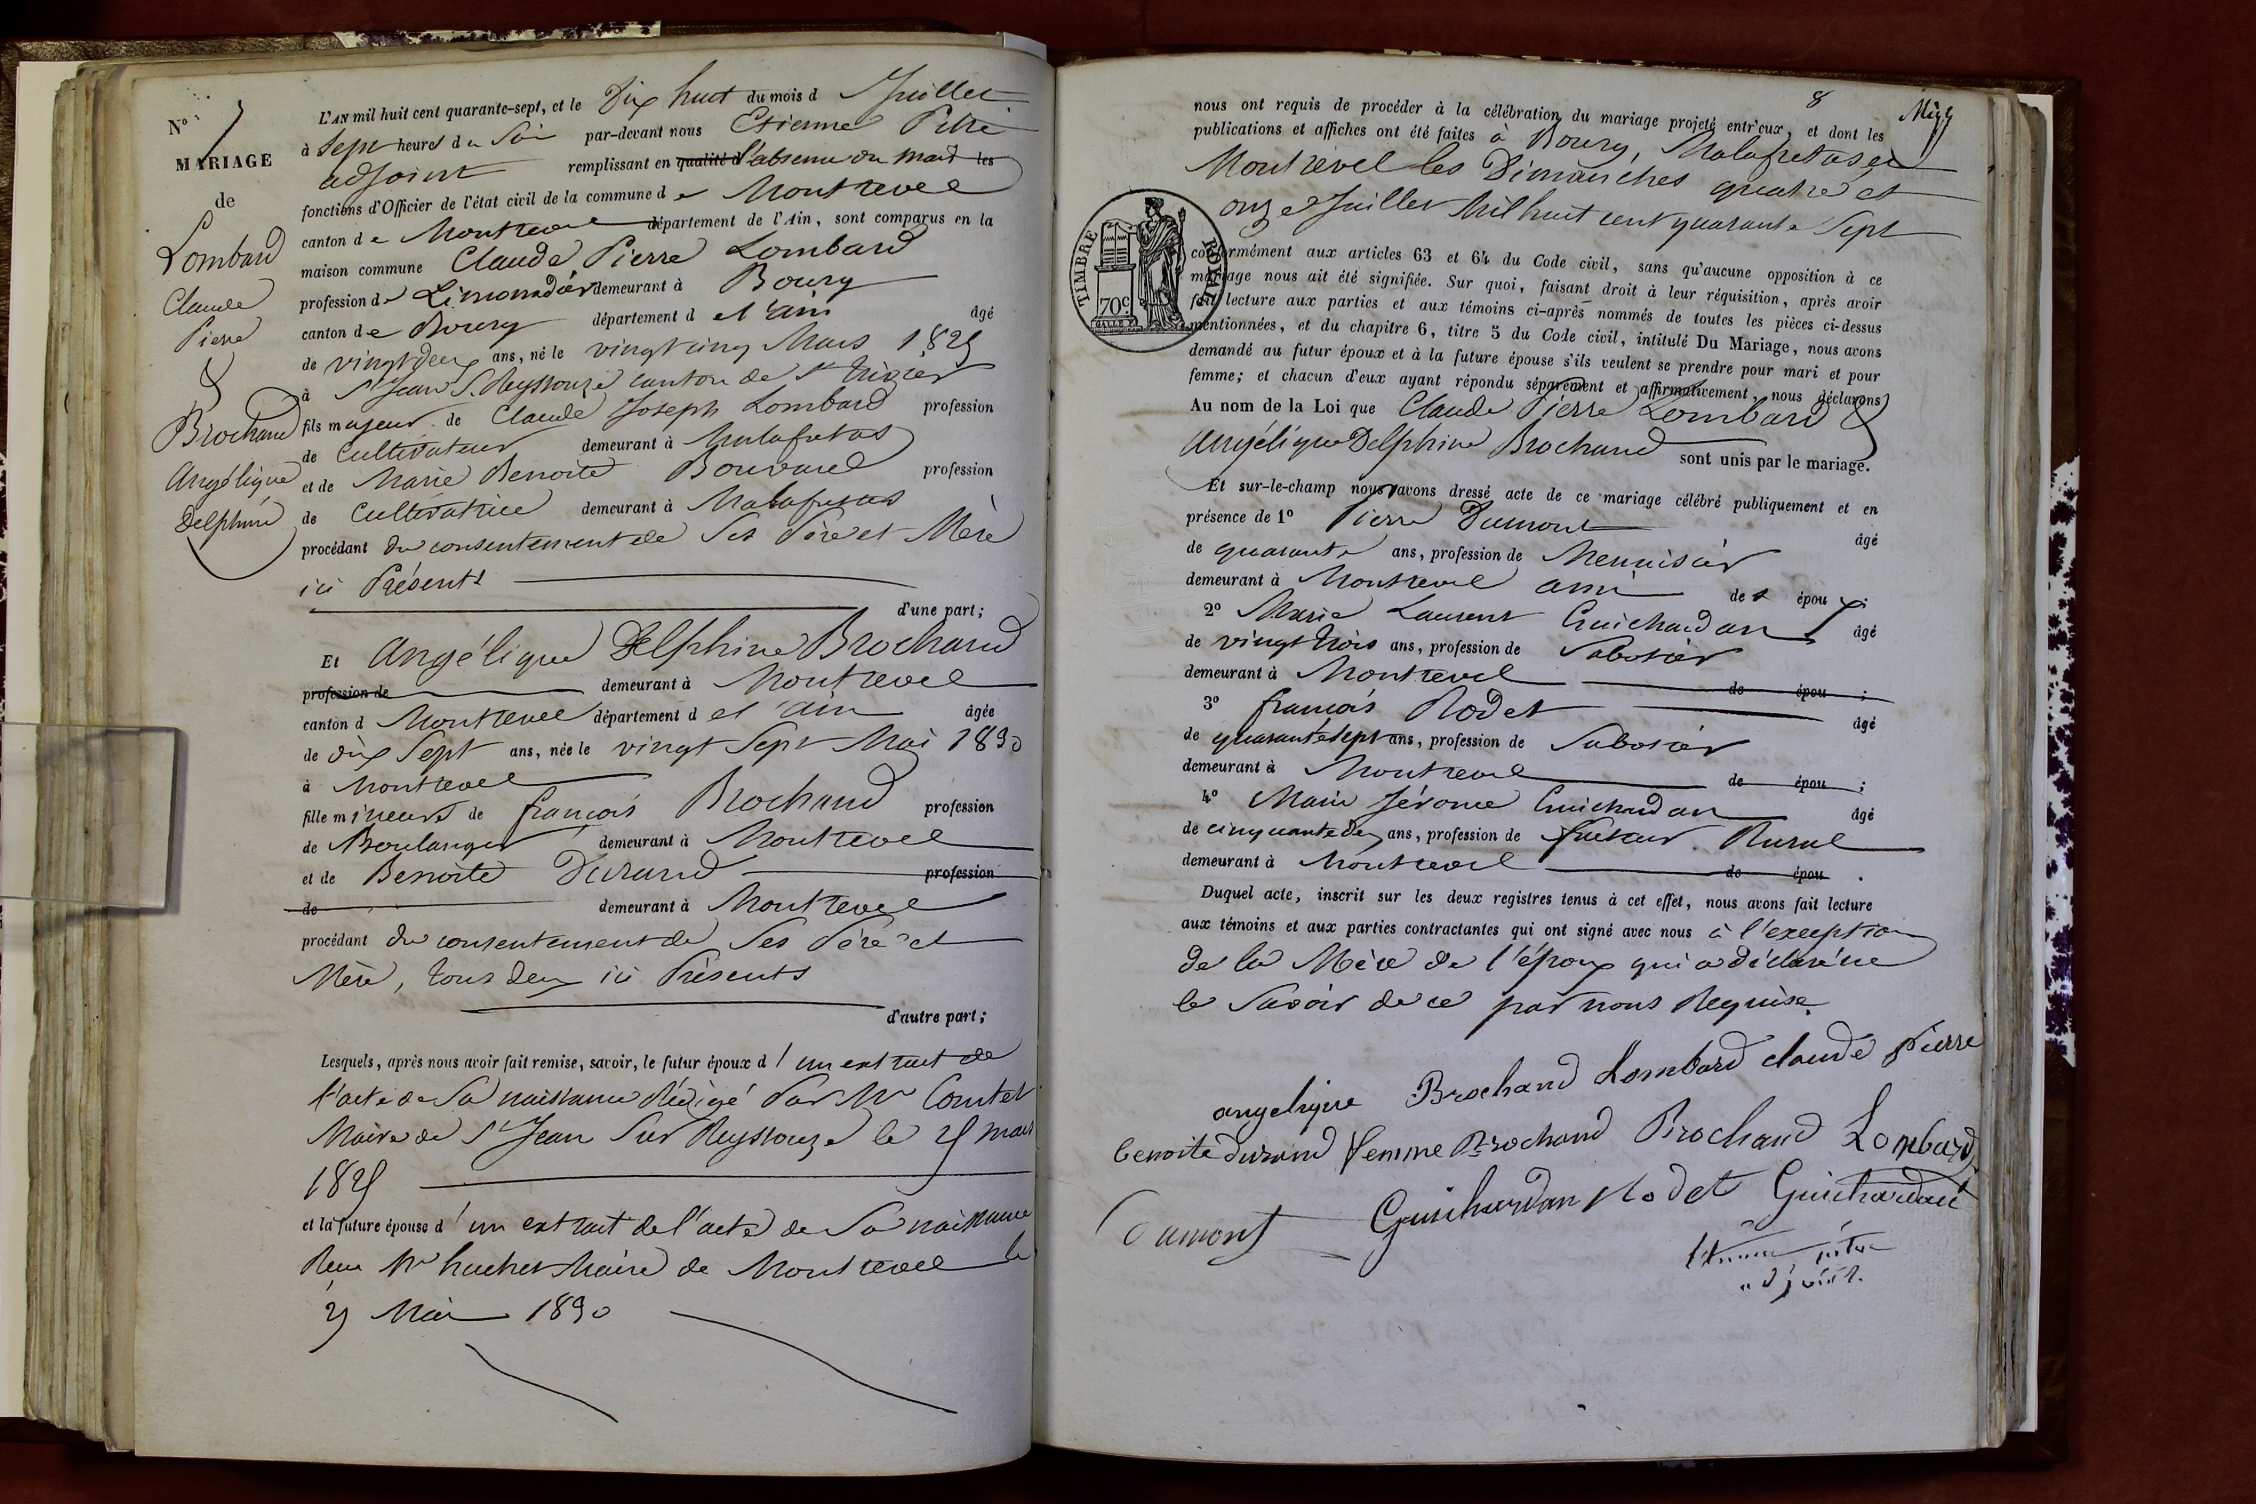 N° 7
MARIAGE
de
Lombard
Claude
Pierre
&
Brochand
Angélique
Delphine
L'AN mil huit cent quarante-sept, et le Dix huit du mois d Juillet
à Sept heures du Soir par-devant nous Etienne Pitre
adjoint remplissant en qualité d l'absence du Maire les
fonctions d'Officier de l'état civil de la commune de Montrevel
canton de Montrevel département de l'Ain, sont comparus en la
maison commune Claude Pierre Lombard
profession de Limonadier demeurant à Bourg
canton de Bourg département de l'ain âgé
de vingt deux ans, né le vingt cinq Mars 1825
à St Jean S. Reyssouze canton de St Trivier
fils majeur de Claude Joseph Lombard profession
de Cultivateur demeurant à Malafretas
et de Marie Benoite Bouvard profession
de Cultivatrice demeurant à Malafretas
procédant du consentement de Ses Père et Mère
ici Présents
d'une part;
Et Angélique Delphine Brochand
profession de demeurant à Montrevel
canton d Montrevel département de l'ain âgée
de dix Sept ans, née le vingt Sept Mai 1830
à Montrevel
fille mineure de françois Brochand profession
de Boulanger demeurant à Montrevel
et de Benoite Durand profession
de demeurant à Montrevel
procédant du consentement de Ses Père et
Mère, tous deux ici Présents
d'autre part;
Lesquels, après nous avoir fait remise, savoir, le futur époux d'un extrait de
l'acte de Sa naissance Rédigé Par Mr Comtet
Maire de St Jean Sur Reyssouze le 25 mars
1825
et la future épouse d'un extrait de l'acte de Sa naissance
Reçu Mr huchet Maire de Montrevel le
27 Mai 1830
8
nous ont requis de procéder à la célébration du mariage projeté entr'eux, et dont les
publications et affiches ont été faites à Bourg, Malafretas et
Montrevel les Dimanches quatre et
onze Juillet Mil huit cent quarante Sept
TIMBRE ROYAL
70c
conformément aux articles 63 et 64 du Code civil, sans qu'aucune opposition à ce
mariage nous ait été signifiée. Sur quoi, faisant droit à leur réquisition, après avoir
fait lecture aux parties et aux témoins ci-après nommés de toutes les pièces ci-dessus
mentionnées, et du chapitre 6, titre 5 du Code civil, intitulé Du Mariage, nous avons
demandé au futur époux et à la future épouse s'ils veulent se prendre pour mari et pour
femme; et chacun d'eux ayant répondu séparément et affirmativement, nous déclarons
Au nom de la Loi que Claude Pierre Lombard &
Angélique Delphine Brochand sont unis par le mariage.
Et sur-le-champ nous avons dressé acte de ce mariage célébré publiquement et en
présence de 1° Pierre Dumont âgé
de quarante ans, profession de Menuisier
demeurant à Montrevel ami des époux;
2° Marie Laurent Guichardan âgé
de vingt trois ans, profession de Sabotier
demeurant à Montrevel de épou ;
3° françois Rodet âgé
de quarante sept ans, profession de Sabotier
demeurant à Montrevel de épou ;
4° Marie Jérome Guichardan âgé
de cinquante deux ans, profession de facteur Rural
demeurant à Montrevel de épou .
Duquel acte, inscrit sur les deux registres tenus à cet effet, nous avons fait lecture
aux témoins et aux parties contractantes qui ont signé avec nous à l'exception
de la Mère de l'époux qui a déclaré ne
le Savoir de ce par nous Requise.
angelique Brochand Lombard claude pierre
benoite durand femme Brochand Brochand Lombard
Dumont Guichardan Rodet Guichardan
Etienne pitre
adjoint.